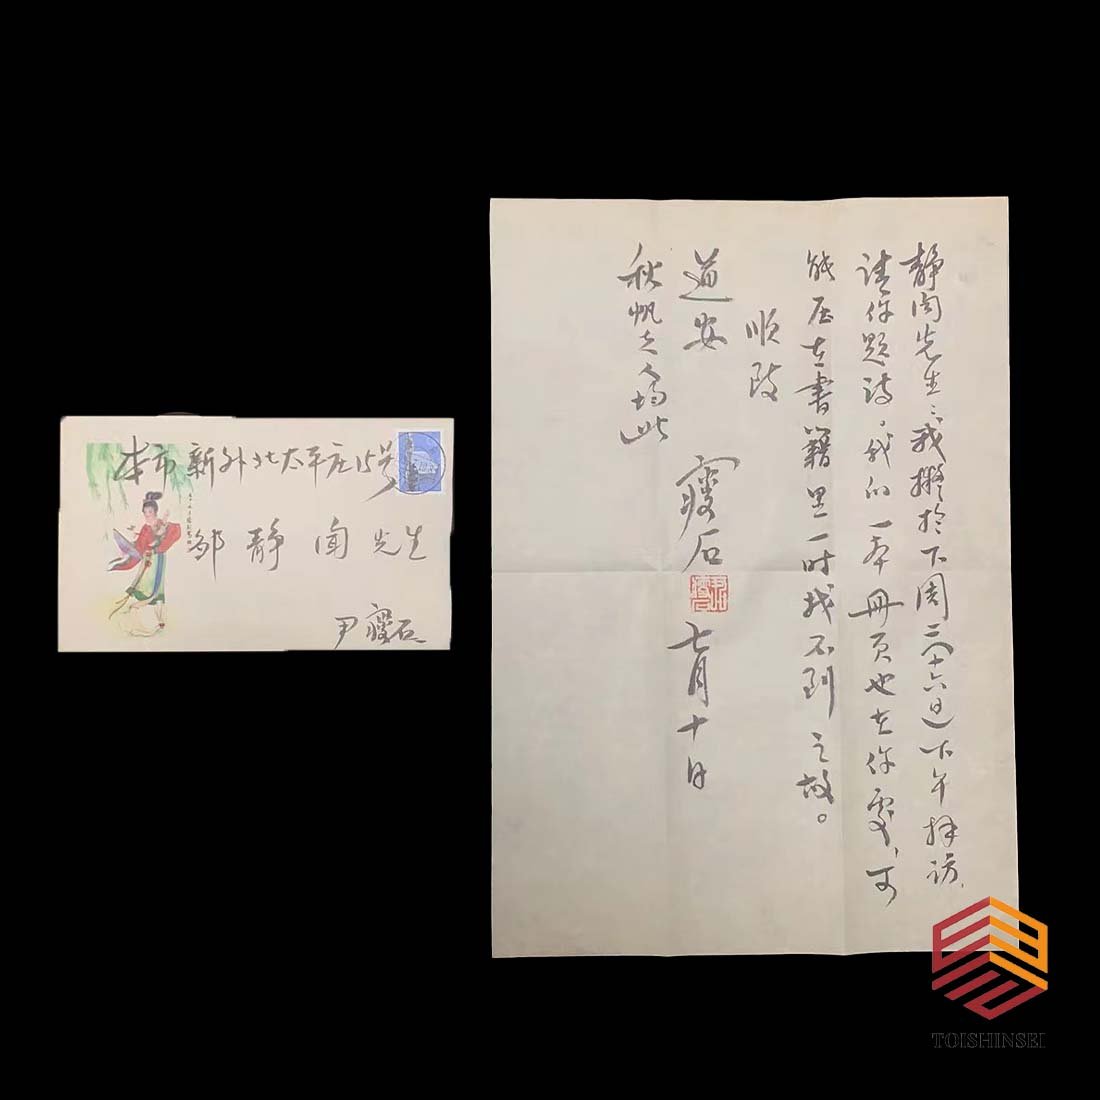 本市新外北太平庄15号
邹静闻先生
尹瘦石
静闻先生：我拟于下周三（十六日）下午拜访，
请你题诗。我的一本册页也在你处，可
能压在书籍里一时找不到之故。
顺致
道安
瘦石
七月十日
秋帆
此
TOISHINSEI